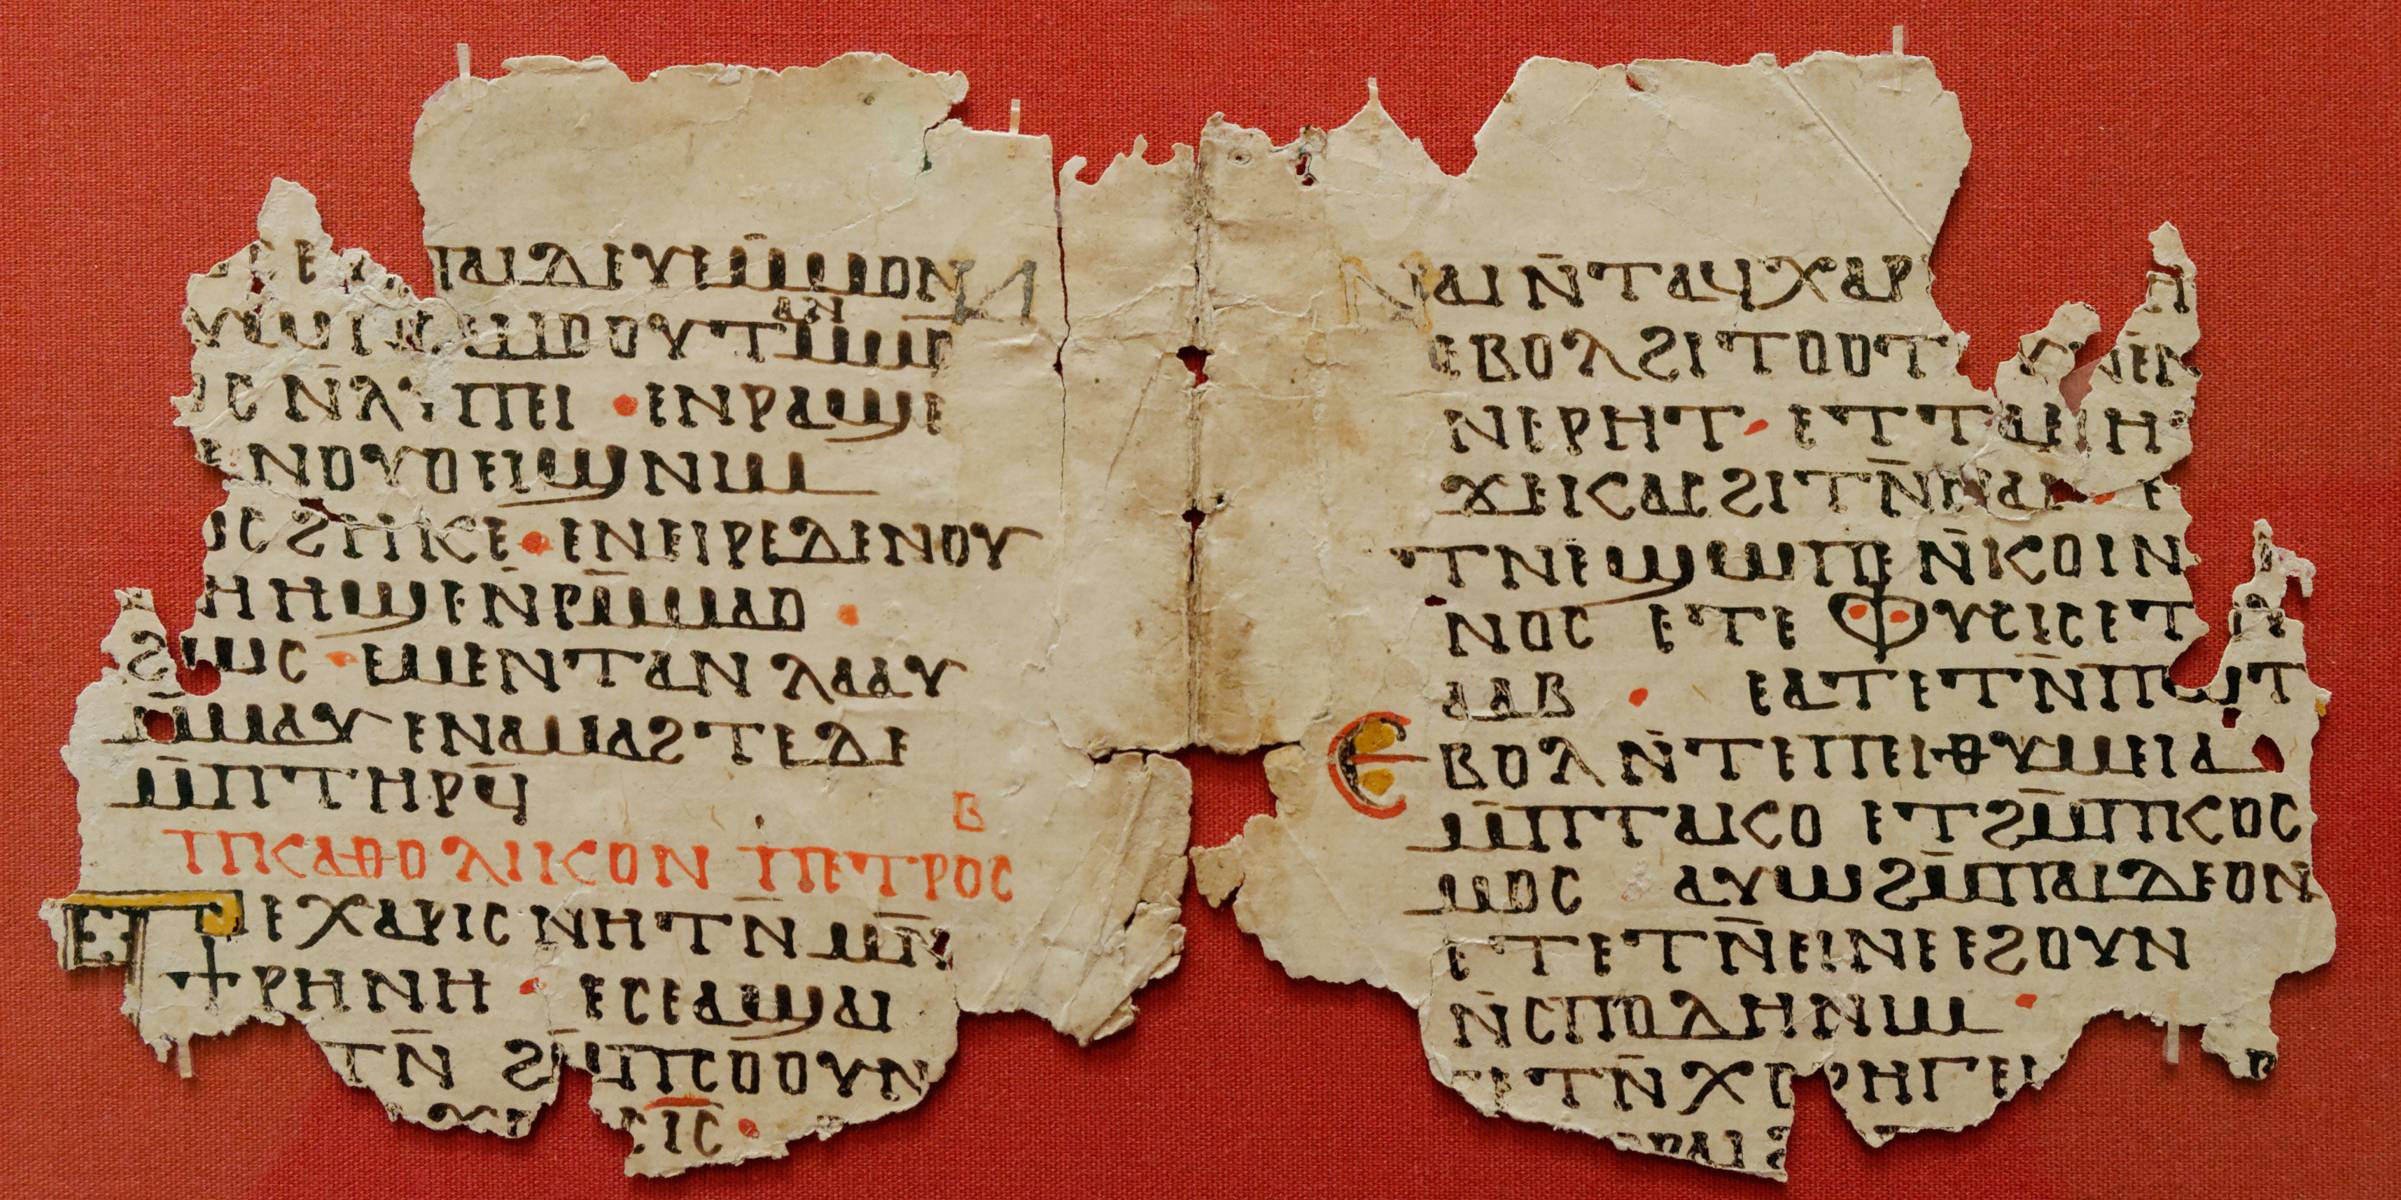 ⲡⲁⲓⲇⲉⲩⲉⲙ̄ⲙⲟⲛ
ⲙⲙⲟⲟⲩⲧⲙ̄ⲙⲟ
ⲁⲛ
ⲛ̄ⲗⲩⲡⲉⲓ · ⲉⲛⲣⲁϣⲉ
ⲛⲟⲩⲟⲉⲓϣⲛⲓⲙ
ϩⲏⲕⲉ · ⲉⲛⲉⲓⲣⲉⲇⲉⲛⲟⲩ
ⲙⲏⲏϣⲉⲛ̄ⲣⲙ̄ⲙⲁⲟ ·
ϩⲱⲥ · ⲉⲙⲉⲛⲧⲁⲛ ⲗⲁⲁⲩ
ⲙ̄ⲙⲁⲩ ⲉⲛⲁⲙⲁϩⲧⲉⲇⲉ
ⲙ̄ⲡⲧⲏⲣϥ̄
ⲃ
ⲧⲡⲕⲁⲑⲟⲗⲓⲕⲟⲛ ⲙ̄ⲡⲉⲧⲣⲟⲥ
ⲧⲉⲭⲁⲣⲓⲥ ⲛⲏⲧⲛ̄ ⲙⲛ̄
ϯⲣⲏⲛⲏ · ⲉⲥⲉⲁϣⲁⲓ
ⲧⲛ̄ ϩⲙ̄ⲡⲥⲟⲟⲩⲛ
ⲓ̄ⲥ̄ ·
ⲛⲁⲓ ⲛ̄ⲧⲁϥⲭⲁⲣ
ⲉⲃⲟⲗϩⲓⲧⲟⲟⲧ
ⲛⲉⲣⲏⲧ · ⲉⲧⲧⲁⲉⲓⲏ
ϫⲉⲕⲁⲥϩⲓⲧⲛ̄ⲛⲁⲓ
ⲧⲛⲉϣⲱⲡⲉ ⲛ̄ⲕⲟⲓⲛ
ⲛⲟⲥ ⲉⲧⲉⲫⲩⲥⲓⲥⲉⲧ
ⲁⲁⲃ · ⲉⲁⲧⲉⲧⲛ̄ⲡⲱⲧ
ⲉⲃⲟⲗ ⲛ̄ⲧⲉⲡⲉⲓⲑⲩⲙⲉⲓⲁ
ⲙ̄ⲡⲧⲁⲕⲟ ⲉⲧϩⲙ̄ⲡⲕⲟⲥ
ⲙⲟⲥ ⲁⲩⲱϩⲙ̄ⲡⲁⲓⲇⲉⲟⲛ
ⲉⲧⲉⲧⲛ̄ⲉⲓⲛⲉⲉϩⲟⲩⲛ
ⲛ̄ⲥⲡⲟⲇⲏⲛⲓⲙ ·
ⲉⲧⲛ̄ⲭⲟⲣⲏⲅⲉⲓ